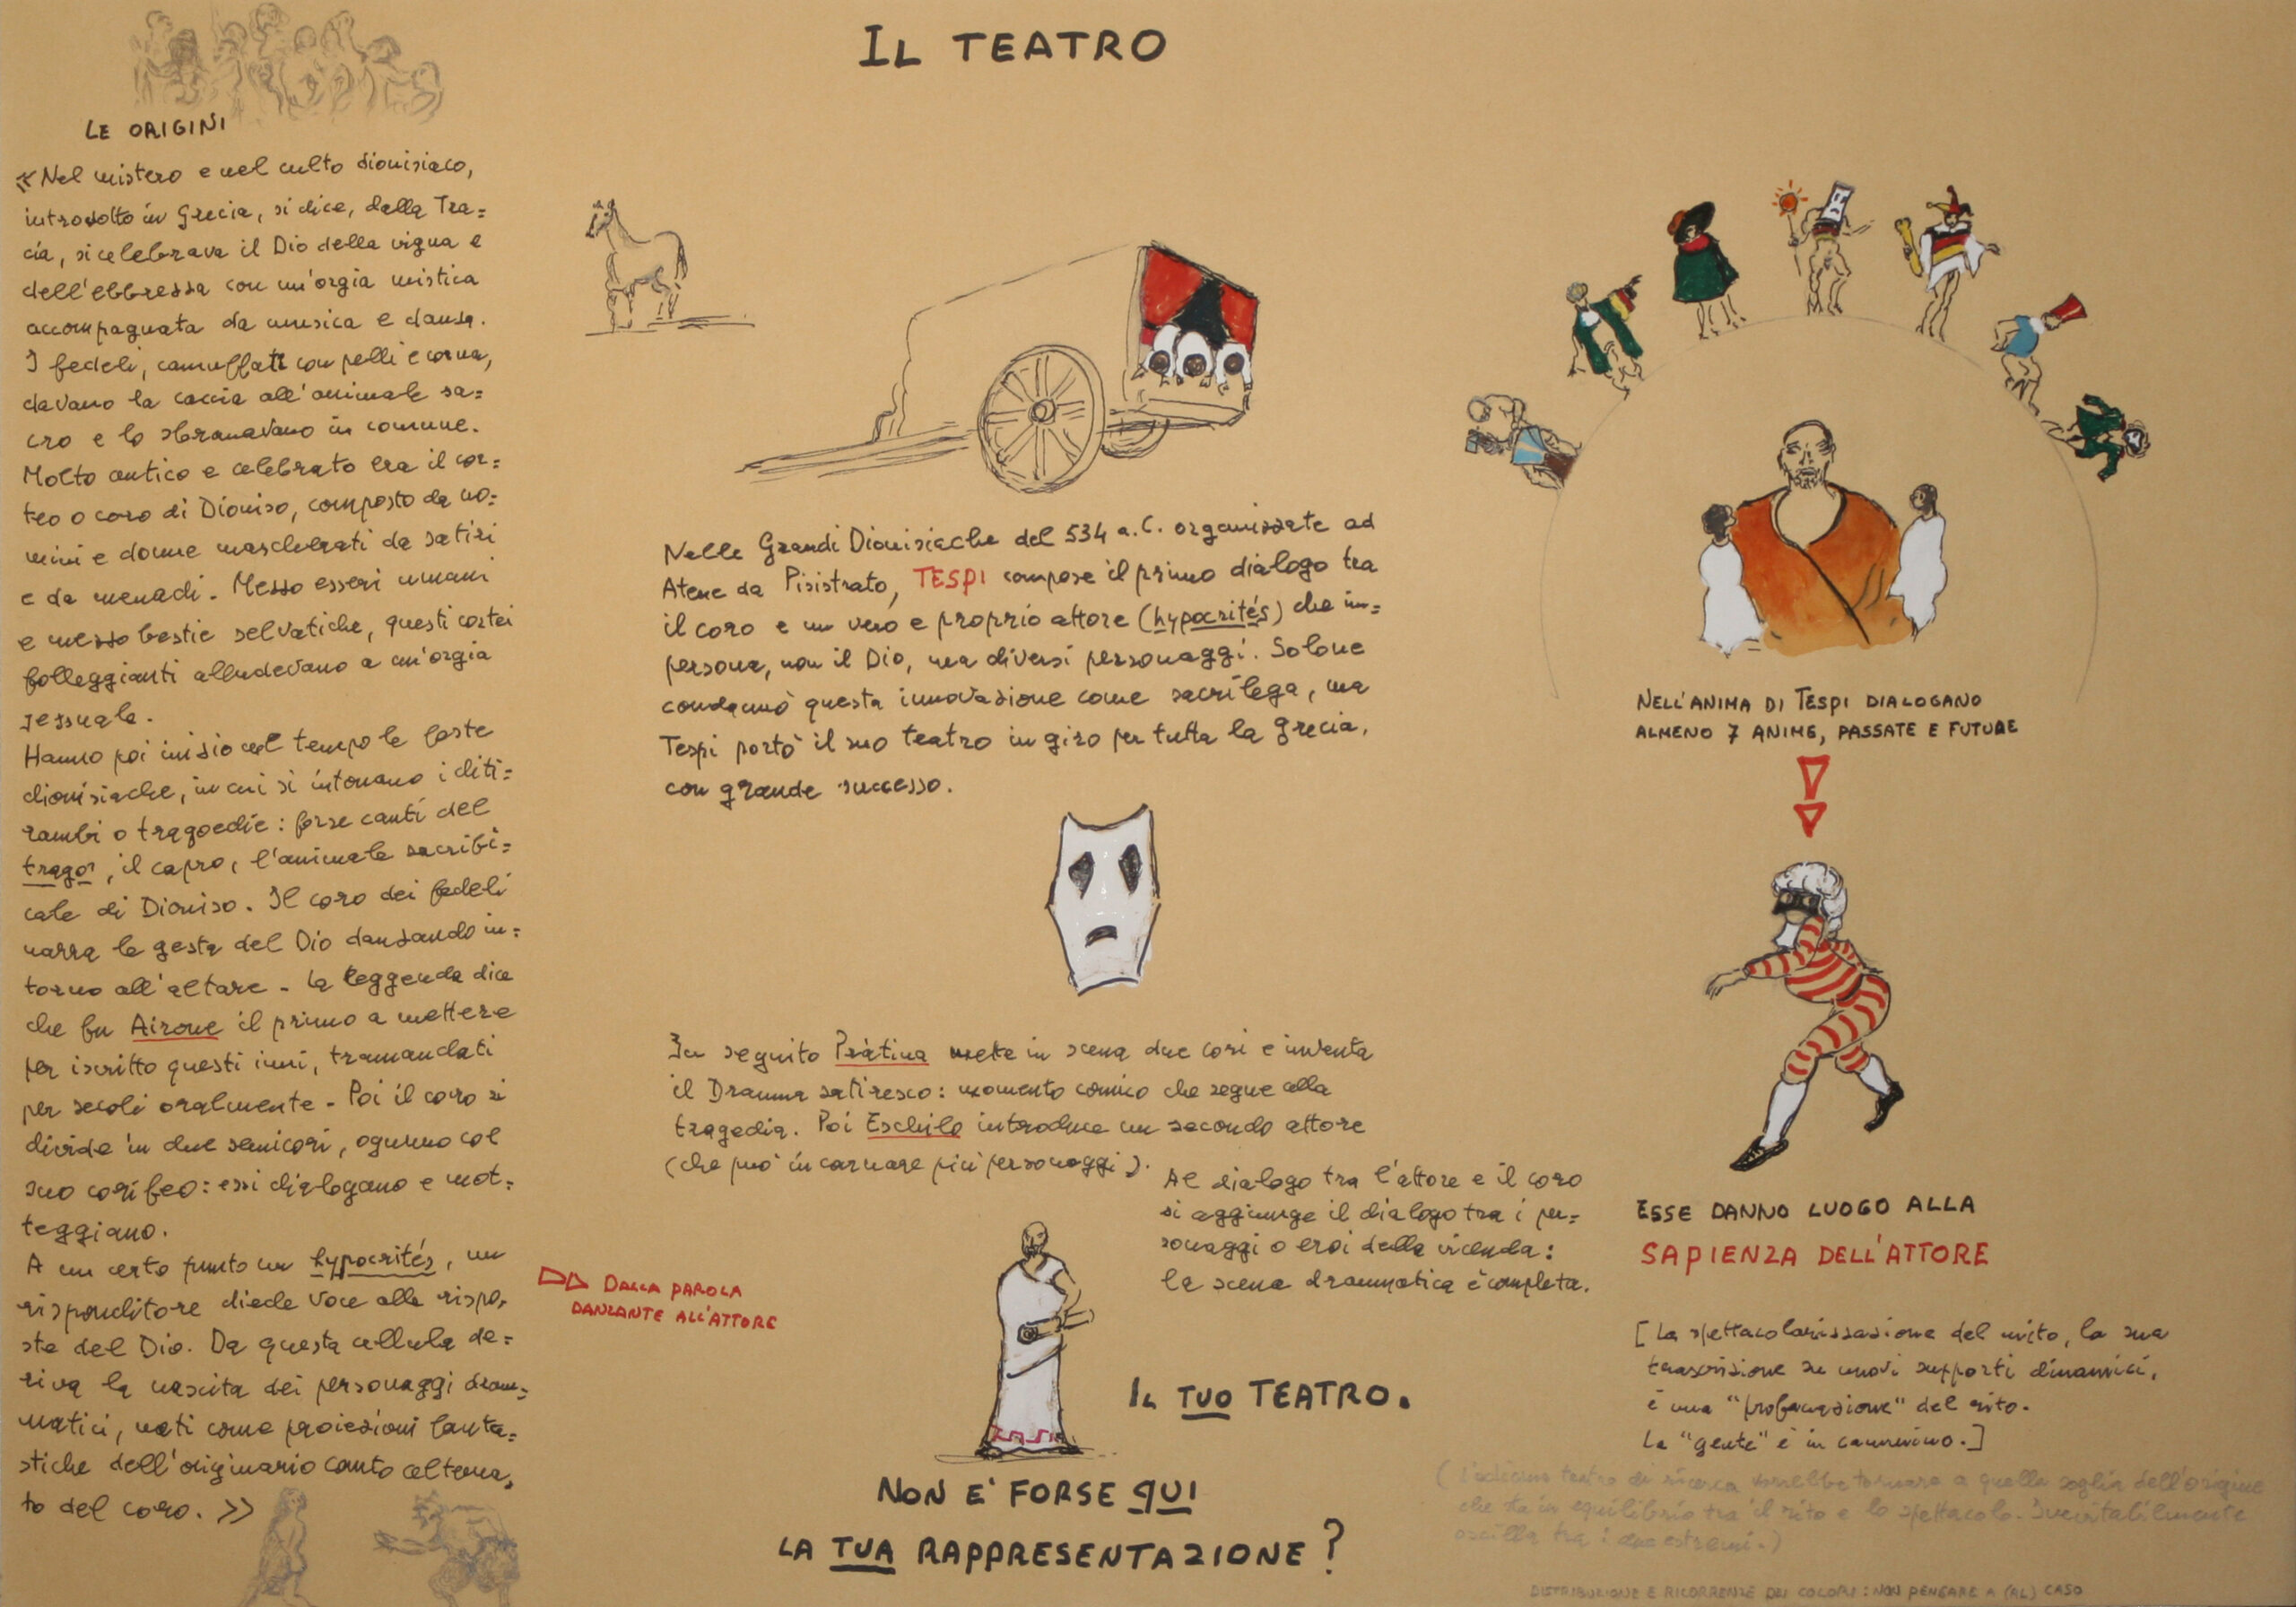 IL TEATRO
LE ORIGINI
«Nel mistero e nel culto dionisiaco,
introdotto in Grecia, si dice, dalla Tra=
cia, si celebrava il Dio della vigna e
dell'ebbrezza con un'orgia mistica
accompagnata da musica e danza.
I fedeli, camuffati con pelli e corna,
davano la caccia all'animale sa=
cro e lo sbranavano in comune.
Molto antico e celebrato era il cor=
teo o coro di Dioniso, composto da uo=
mini e donne mascherati da satiri
e da menadi. Mezzo esseri umani
e mezzo bestie selvatiche, questi cortei
folleggianti alludevano a un'orgia
sessuale.
Hanno poi inizio nel tempo le feste
dionisiache, in cui si intonano i diti=
rambi o tragoedie: forse canti del
tragos, il capro, l'animale sacrifi=
cale di Dioniso. Il coro dei fedeli
narra le gesta del Dio danzando in=
torno all'altare - La leggenda dice
che fu Airone il primo a mettere
per iscritto questi inni, tramandati
per secoli oralmente - Poi il coro si
divide in due semicori, ognuno col
suo corifeo: essi dialogano e mot=
teggiano.
A un certo punto un hypocrités, un
risponditore diede voce alle rispo=
ste del Dio. Da questa cellula de=
riva la nascita dei personaggi dram=
matici, nati come proiezioni fanta=
stiche dell'originario canto alterna=
to del coro.»
DALLA PAROLA
DANZANTE ALL'ATTORE
Nelle Grandi Dionisiache del 534 a.C. organizzate ad
Atene da Pisistrato, TESPI compose il primo dialogo tra
il coro e un vero e proprio attore (hypocrités) che im=
persona, non il Dio, ma diversi personaggi. Solone
condannò questa innovazione come sacrilega, ma
Tespi portò il suo teatro in giro per tutta la Grecia,
con grande successo.
In seguito Pràtina mette in scena due cori e inventa
il Dramma satiresco: momento comico che segue alla
tragedia. Poi Eschilo introduce un secondo attore
(che può incarnare più personaggi).
Al dialogo tra l'attore e il coro
si aggiunge il dialogo tra i per=
sonaggi o eroi della vicenda:
la scena drammatica è completa.
IL TUO TEATRO.
NON E' FORSE QUI
LA TUA RAPPRESENTAZIONE?
NELL'ANIMA DI TESPI DIALOGANO
ALMENO 7 ANIME, PASSATE E FUTURE
ESSE DANNO LUOGO ALLA
SAPIENZA DELL'ATTORE
[La spettacolarizzazione del mito, la sua
trascrizione su nuovi supporti dinamici,
è una "profanazione" del rito.
La "gente" è in cammino.]
teatro di ricerca vorrebbe tornare a quella soglia dell'origine
che sta in equilibrio tra il rito e lo spettacolo. Inevitabilmente
oscilla tra i due estremi.)
DISTRIBUZIONE E RICORRENZE DEI COLORI: NON PENSARE A (AL) CASO